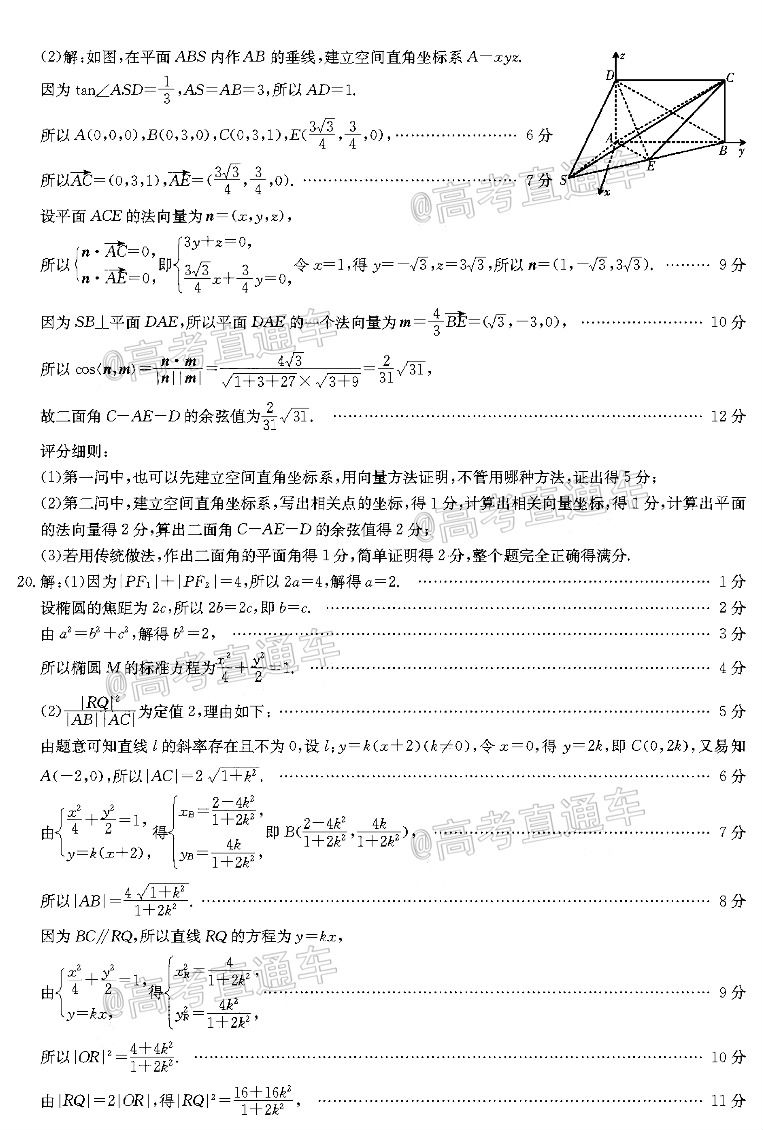 (2)解:如图,在平面 ABS 内作 AB 的垂线,建立空间直角坐标系 A-xyz.
因为 tan∠ASD=1/3,AS=AB=3,所以 AD=1.
所以 A(0,0,0),B(0,3,0),C(0,3,1),E(3√3/4,3/4,0), …………………… 6 分
所以AC→=(0,3,1),AE→=(3√3/4,3/4,0). …………………… 7 分
z
D
C
A
B
y
E
S
x
设平面 ACE 的法向量为 n=(x,y,z),
所以{n·AC→=0, n·AE→=0, 即{3y+z=0, 3√3/4 x+3/4 y=0, 令 x=1,得 y=-√3,z=3√3,所以 n=(1,-√3,3√3). ……… 9 分
因为 SB⊥平面 DAE,所以平面 DAE 的一个法向量为 m=4/3 BE→=(√3,-3,0), …………………… 10 分
所以 cos⟨n,m⟩=n·m/|n||m|=4√3/(√1+3+27×√3+9)=2/31 √31,
故二面角 C-AE-D 的余弦值为2/31 √31. …………………… 12 分
评分细则:
(1)第一问中,也可以先建立空间直角坐标系,用向量方法证明,不管用哪种方法,证出得 5 分;
(2)第二问中,建立空间直角坐标系,写出相关点的坐标,得 1 分,计算出相关向量坐标,得 1 分,计算出平面
的法向量得 2 分,算出二面角 C-AE-D 的余弦值得 2 分;
(3)若用传统做法,作出二面角的平面角得 1 分,简单证明得 2 分,整个题完全正确得满分.
20. 解:(1)因为|PF₁|+|PF₂|=4,所以 2a=4,解得 a=2. …………………… 1 分
设椭圆的焦距为 2c,所以 2b=2c,即 b=c. …………………… 2 分
由 a²=b²+c²,解得 b²=2, …………………… 3 分
所以椭圆 M 的标准方程为x²/4+y²/2=1. …………………… 4 分
(2)|RQ|²/|AB||AC|为定值 2,理由如下: …………………… 5 分
由题意可知直线 l 的斜率存在且不为 0,设 l:y=k(x+2)(k≠0),令 x=0,得 y=2k,即 C(0,2k),又易知
A(-2,0),所以|AC|=2√1+k². …………………… 6 分
由{x²/4+y²/2=1, y=k(x+2), 得{x_B=(2-4k²)/(1+2k²), y_B=4k/(1+2k²), 即 B((2-4k²)/(1+2k²),4k/(1+2k²)), …………………… 7 分
所以|AB|=4√1+k²/(1+2k²). …………………… 8 分
因为 BC∥RQ,所以直线 RQ 的方程为 y=kx,
由{x²/4+y²/2=1, y=kx, 得{x²_R=4/(1+2k²), y²_R=4k²/(1+2k²), …………………… 9 分
所以|OR|²=(4+4k²)/(1+2k²). …………………… 10 分
由|RQ|=2|OR|,得|RQ|²=(16+16k²)/(1+2k²), …………………… 11 分
@高考直通车
@高考直通车
@高考直通车
@高考直通车
@高考直通车
@高考直通车